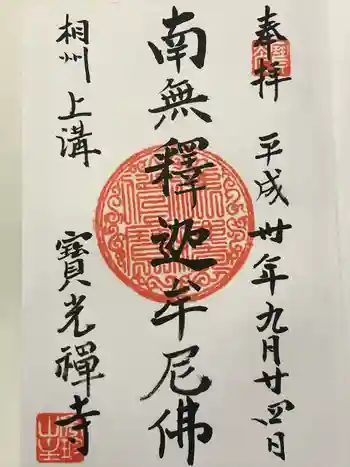 奉拝 平成卅年九月廿四日
南無釋迦牟尼佛
相州上溝 寶光禪寺